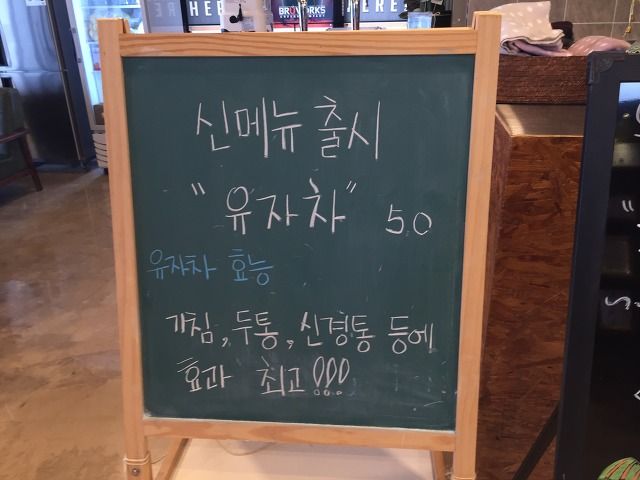 BRÜWORKS
신메뉴 출시
"유자차" 5.0
유자차 효능
기침, 두통, 신경통 등에
효과 최고!!!